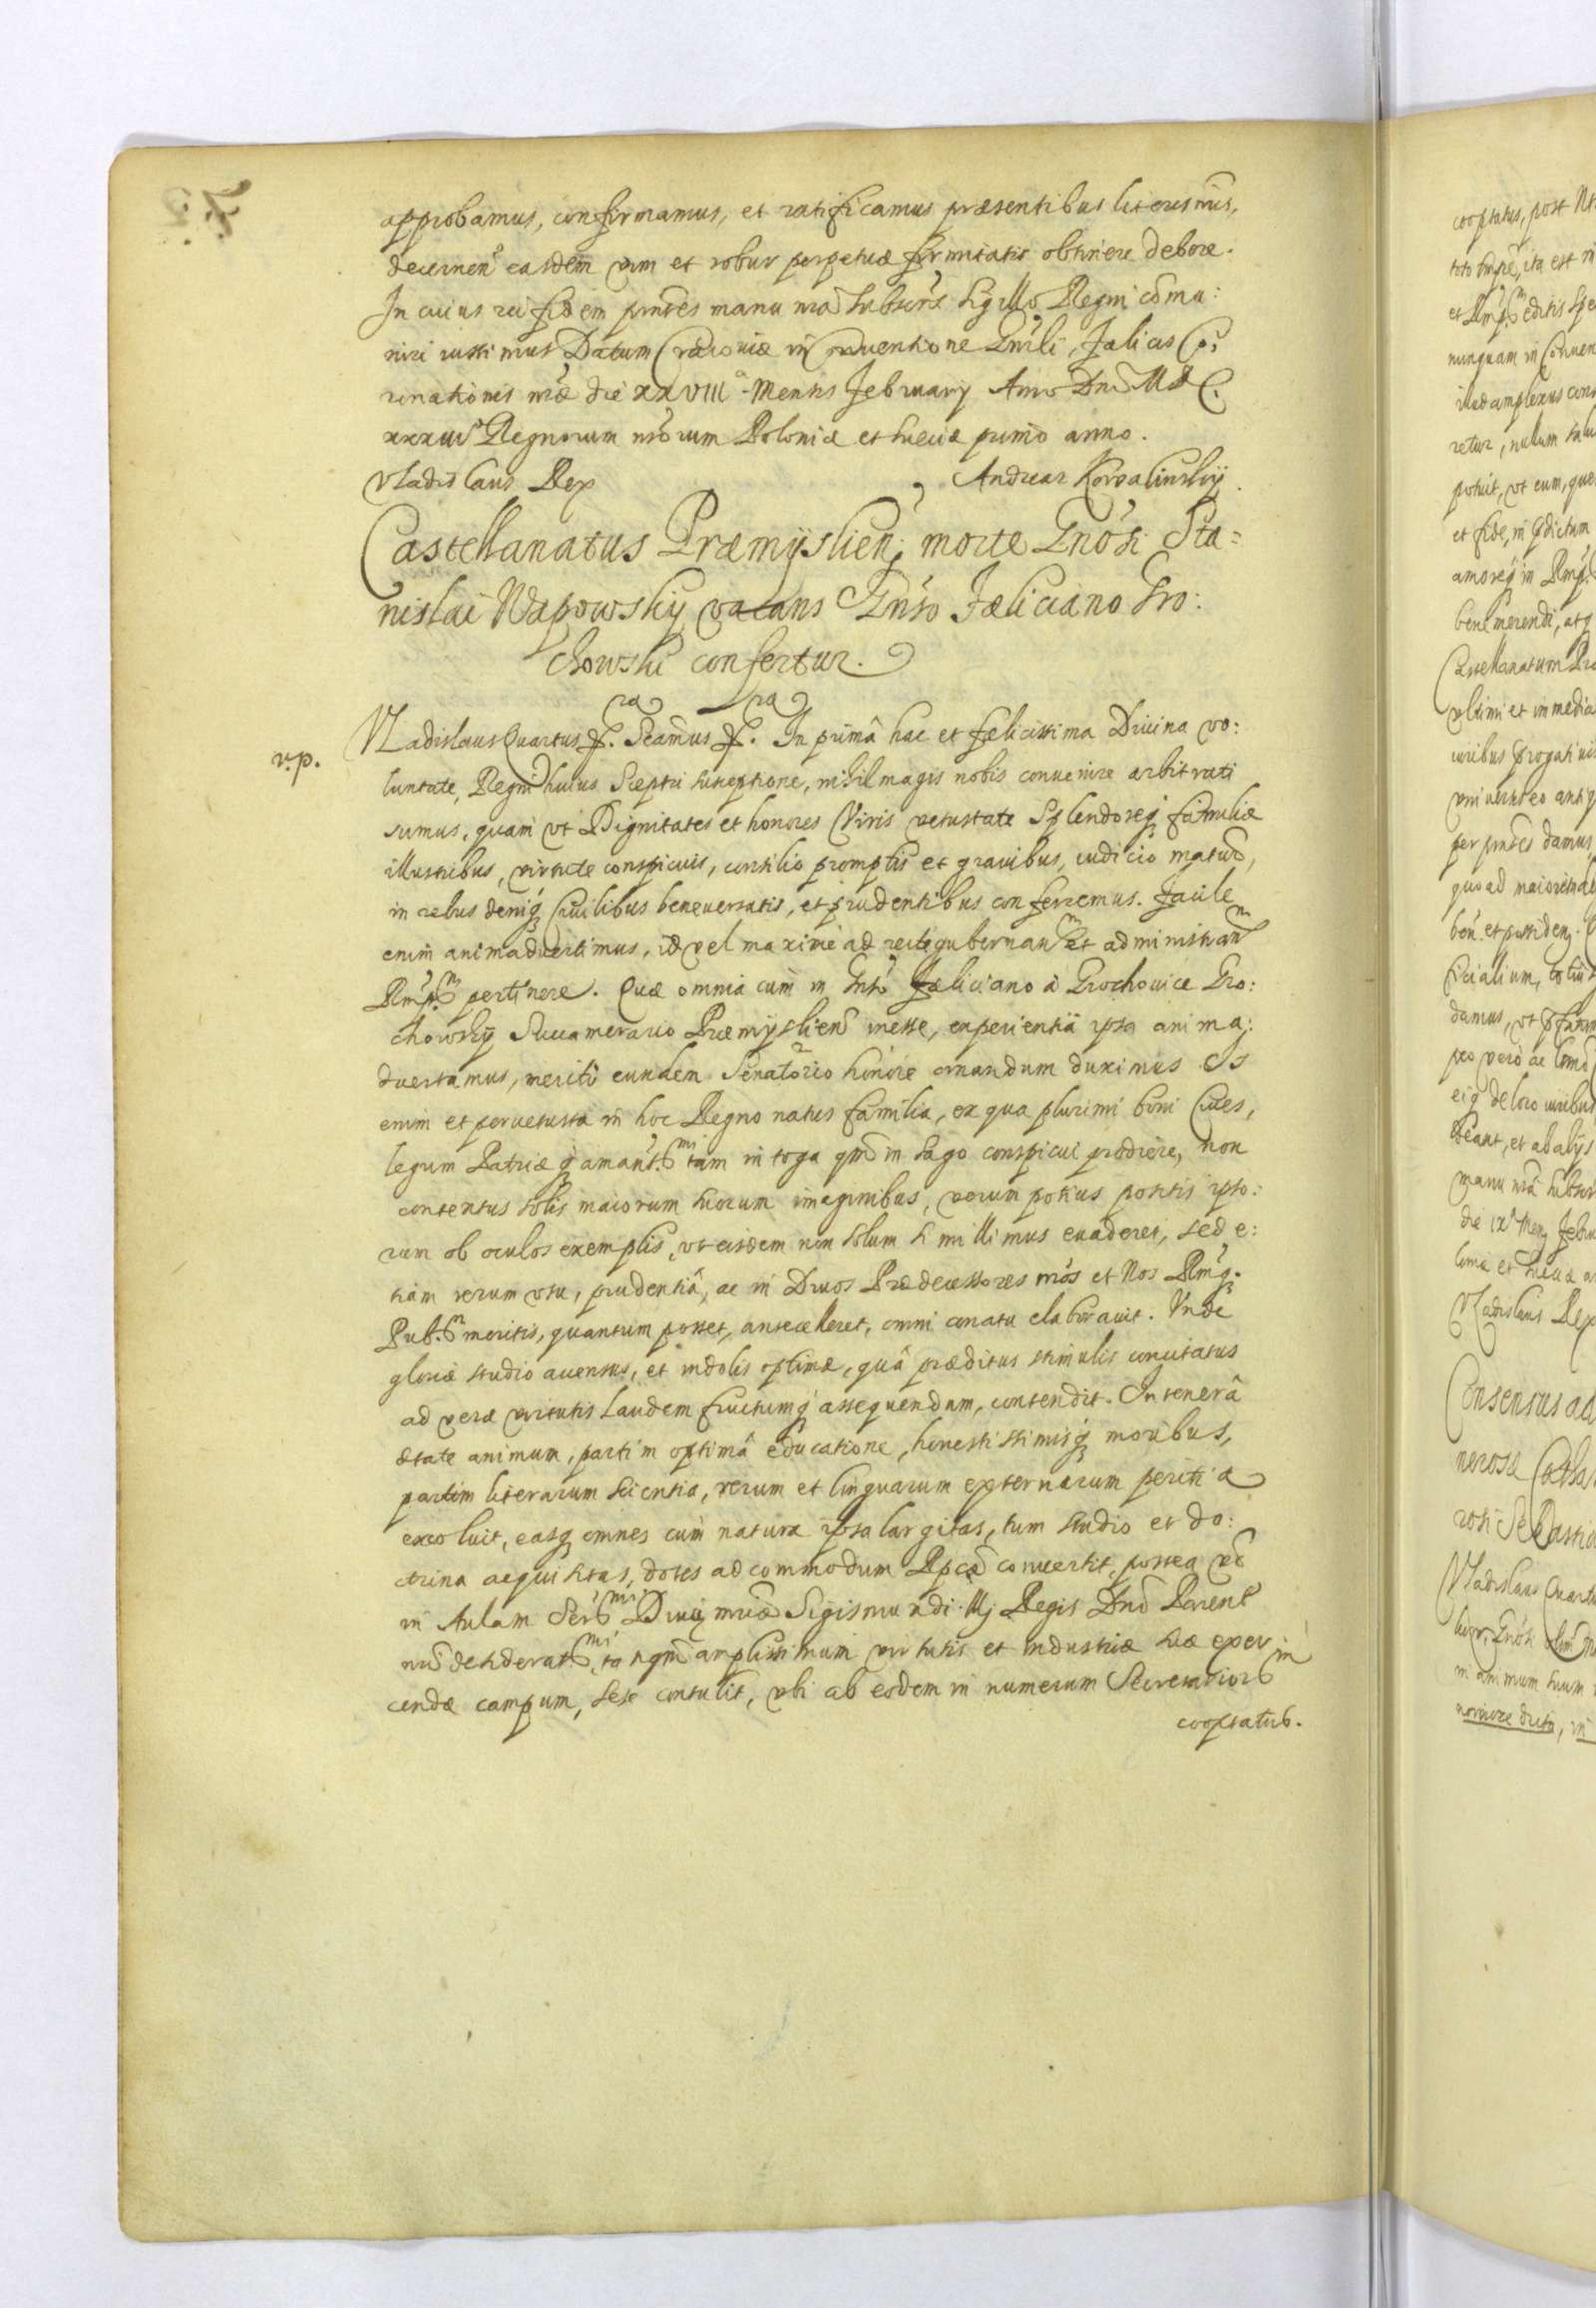 approbamus, confirmamus, et ratificamus præsentibus literis nris,
decernen̄ easdem vim et robur perpetuæ firmitatis obtinere debere.
In cuius rei fidem pnṫes manu nrā subscr̄s sigillo Regni com̄u:
niri iussimus Datum Cracoviæ in Conventione Gnrli, Felicis Co:
ronationis nrǣ die XXVIIIᵃ Mensis February Anno Dnī M D C.
XXXIIIᵒ Regnorum nrōrum Poloniæ et Sueciæ primo anno.
Vladislaus Rex Andreas Kowalinskij.
Castellanatus Præmÿslien: morte Gnōsi Sta=
nislai Wapowskij vacans Gnso Fæliciano Gro:
chowski confertur.
v.p.
VLadislaus Quartus &. Seamus &. In primâ hac et fælicissima Divina vo:
luntate, Regni huius Sceptri susceptione, nihil magis nobis convenire arbitrati
sumus, quam vt Dignitates et honores Viris vetustate Splendoreq familiæ
illustribus, virtute conspicuis, consilio promptis et gravibus, iudicio maturo,
in rebus deniq Civilibus bene versatis, et prudentibus conferremus. Facile
enim animadvertimus, id vel maximè ad recte gubernan et administran
Rmp. pertinere. Quæ omnia cum in Gnso Fæliciano à Grochovice Gro:
chowskÿ Succamerario Præmÿslien inesse, experientiâ ipsa anima:
dvertamus, meritò eundem Senatorio honore ornandum duximus. Is
enim et pervetusta in hoc Regno natus familia, ex qua plurimi boni Cives,
legum Patriæq amant. tam in toga qm in Sago conspicui prodiere, non
contentus solis maiorum suorum imaginibus, verum potius positis ipso:
rum ob oculos exemplis, vt eisdem non solum simillimus evaderet, sed e:
tiam rerum vsu, prudentiâ, ac in Divos Prædecessores nrōs et Nos Rmq.
Pub. meritis, quantum posset, antecelleret, omni conatu elaboravit. Vnde
gloriæ studio accensus, et indolis optimæ, quâ præditus stimulis concitatus
ad veræ virtutis laudem fructumq assequendum, contendit. In tenerâ
ætate animum, partim optimâ educatione, honestissimisq moribus,
partim literarum scientia, rerum et linguarum externarum peritia
excoluit, easq omnes cum natura ipsa largitas, tum studio et do:
ctrina aequisitas, dotes ad commodum Rpcæ convertit, postea vē
in Aulam Ser Divi mriæ Sigismundi III Regis Dnī Parent
nrī desiderat., tanqm amplissimum virtutis et industriæ suæ exer
cendæ campum, sese contulit, vbi ab eodem in numerum Secretarior
cooptatus.